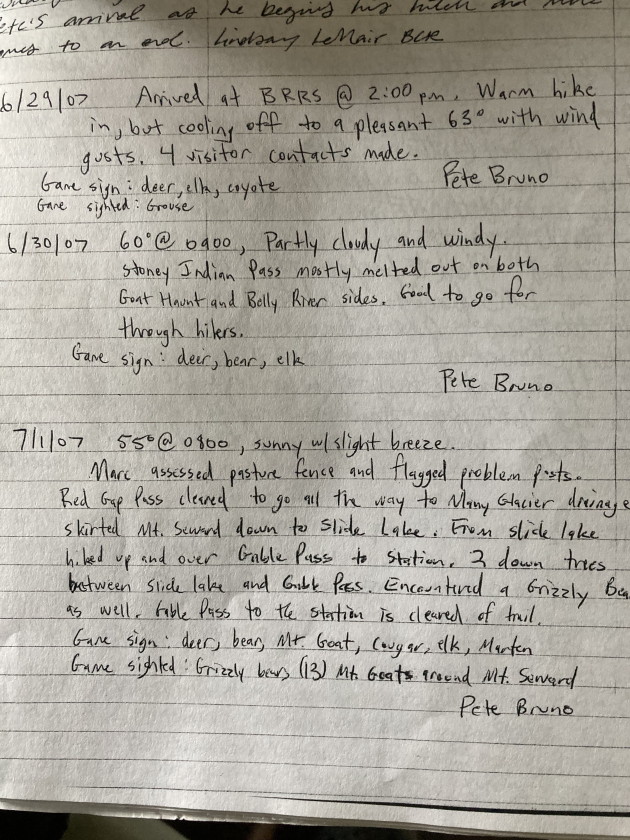 arrival as he begins his hitch and
to an end. Lindsay LeMair BCR
6/29/07 Arrived at BRRS @ 2:00 pm. Warm hike
in, but cooling off to a pleasant 63° with wind
gusts. 4 visitor contacts made.
Pete Bruno
Game sign: deer, elk, coyote
Game sighted: Grouse
6/30/07 60° @ 0900, Partly cloudy and windy.
Stoney Indian Pass mostly melted out on both
Goat Haunt and Belly River sides. Good to go for
through hikers.
Game sign: deer, bear, elk
Pete Bruno
7/1/07 55° @ 0800, sunny w/ slight breeze.
Marc assessed pasture fence and flagged problem posts.
Red Gap Pass cleared to go all the way to Many Glacier drainage
skirted Mt. Seward down to Slide Lake. From slide lake
hiked up and over Gable Pass to Station. 3 down trees
between slide lake and Gable Pass. Encountered a Grizzly Bea
as well. Gable Pass to the station is cleared of trail.
Game sign: deer, bear, Mt. Goat, Cougar, elk, Marten
Game sighted: Grizzly bear, (13) Mt Goats around Mt. Seward
Pete Bruno